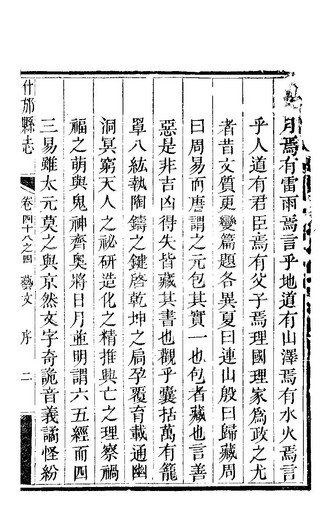 月焉有雷雨焉言乎地道有山澤焉有水火焉言
乎人道有君臣焉有父子焉理國理家為政之尤
者昔文質更變篇題各異夏曰連山殷曰歸藏周
曰周易而唐謂之元包其實一也包者藏也言善
惡是非吉凶得失皆藏其書也觀乎囊括萬有籠
罩八紘執陶鑄之鍵啓乾坤之扃孕覆育載通幽
洞冥窮天人之祕研造化之精推興亡之理察禍
福之萌與鬼神齊奧將日月並明謂六五經而四
三易雖太元莫之與京然文字奇詭音義譎怪紛
什邡縣志 卷四十八之四 藝文 序 二